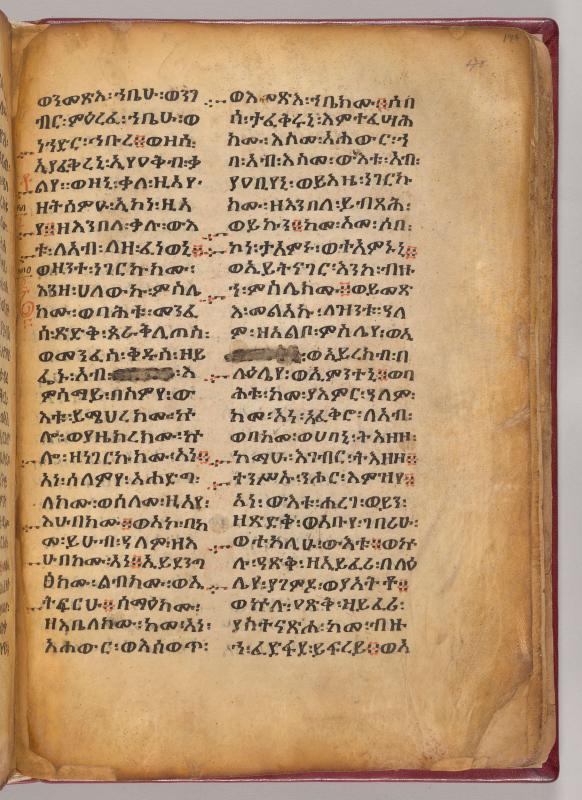 ወንመጽእ፡ኀቤሁ፡ወንገ
ብር፡ምዕረፈ፡ኀቤሁ፡ወ
ነንድር፡ኀቡረ፡፡ወዘሰ፡
ኢየፈቅረኒ፡ኢየዐቅብ፡ቃ
ልየ፡፡ወዝኒ፡ቃለ፡ዚአየ፡
ዘትሰምዑ፡ኢኮነ፡ዚአ
የ፡፡ዘእንበለ፡ቃሉ፡ውእ
ቱ፡ለአብ፡ለዘ፡ፈነወኒ፡፡
ወዘንተ፡ነገርኩከሙ፡
እንዘ፡ሀለውኩ፡ምስሌ
ክሙ፡ወባሕቱ፡መንፈ
ሰ፡ጽድቅ፡ጰራቅሊጦስ፡
ወመንፈስ፡ቅዱስ፡ዘይ
ፌኑ፡አብ፡
ምሰማይ፡በስምየ፡ው
እቱ፡ይሜህረክሙ፡ኵ
ሎ፡ወያዜክረክሙ፡ኵ
ሎ፡ዘነገርኩከሙ፡አነ፡፡
አነ፡ሰላምየ፡አሐድግ፡
ለክሙ፡ወሰላመ፡ዚአየ፡
እሁበክሙ፡፡ወአኮ፡በከ
መ፡ይሁብ፡ዓለም፡ዘእ
ሁበክሙ፡አነ፡፡ኢይደንግ
ፅክሙ፡ልብክሙ፡ወኢ
ትፍርሁ፡፡ሰማዕክሙ፡
ዘእቤለክሙ፡ከመ፡አነ፡
አሐውር፡ወእሰወጥ፡
ወእመጽእ፡ኀቤክሙ፡፡ሶበ
ሰ፡ታፈቅሩኒ፡እምተፈሣሕ
ክሙ፡እስመ፡አሐውር፡ኀ
በ፡አብ፡እስመ፡ውእቱ፡አብ፡
የዐቢየኒ፡ወይእዜ፡ነገርኩ
ክሙ፡ዘእንበለ፡ይብጻሕ፡
ወይኩን፡፡ከመ፡አመ፡ሶበ፡
ኮነ፡ታአምሩ፡ወተአምኑኒ፡፡
ወኢይትናገር፡እንከ፡ብዙ
ኀ፡ምስሌክሙ፡፡ወይመጽ
እ፡መልአኩ፡ለዝንቱ፡ዓለ
ም፡ዘአልቦ፡ምስሌየ፡ወኢ
፡ወኢይረክብ፡በ
ላዕሌየ፡ወኢምንተኒ፡፡ወባ
ሕቱ፡ከመ፡ያእምር፡ዓለም፡
ከመ፡አነ፡አፈቅሮ፡ለአብ፡
ወበከመ፡ወሀበኒ፡ትእዛዘ፡
ከማሁ፡እገብር፡ትእዛዘ፡፡
ተንሥኡ፡ንሖር፡እምዝየ፡፡
አነ፡ውእቱ፡ሐረገ፡ወይን፡
ዘጽድቅ፡ወአቡየ፡ገበሪሁ፡
ወተከሊሁ፡ውእቱ፡፡ወኵ
ሉ፡ዓጽቅ፡ዘኢይፈሪ፡በላዕ
ሌየ፡ያገምድ፡ወያአትቶ፡፡
ወኵሎ፡ዐጽቅ፡ዘይፈሪ፡
ያስተናጽሖ፡ከመ፡ብዙ
ኀ፡ፈድፋደ፡ይፍረይ፡፡ወአ